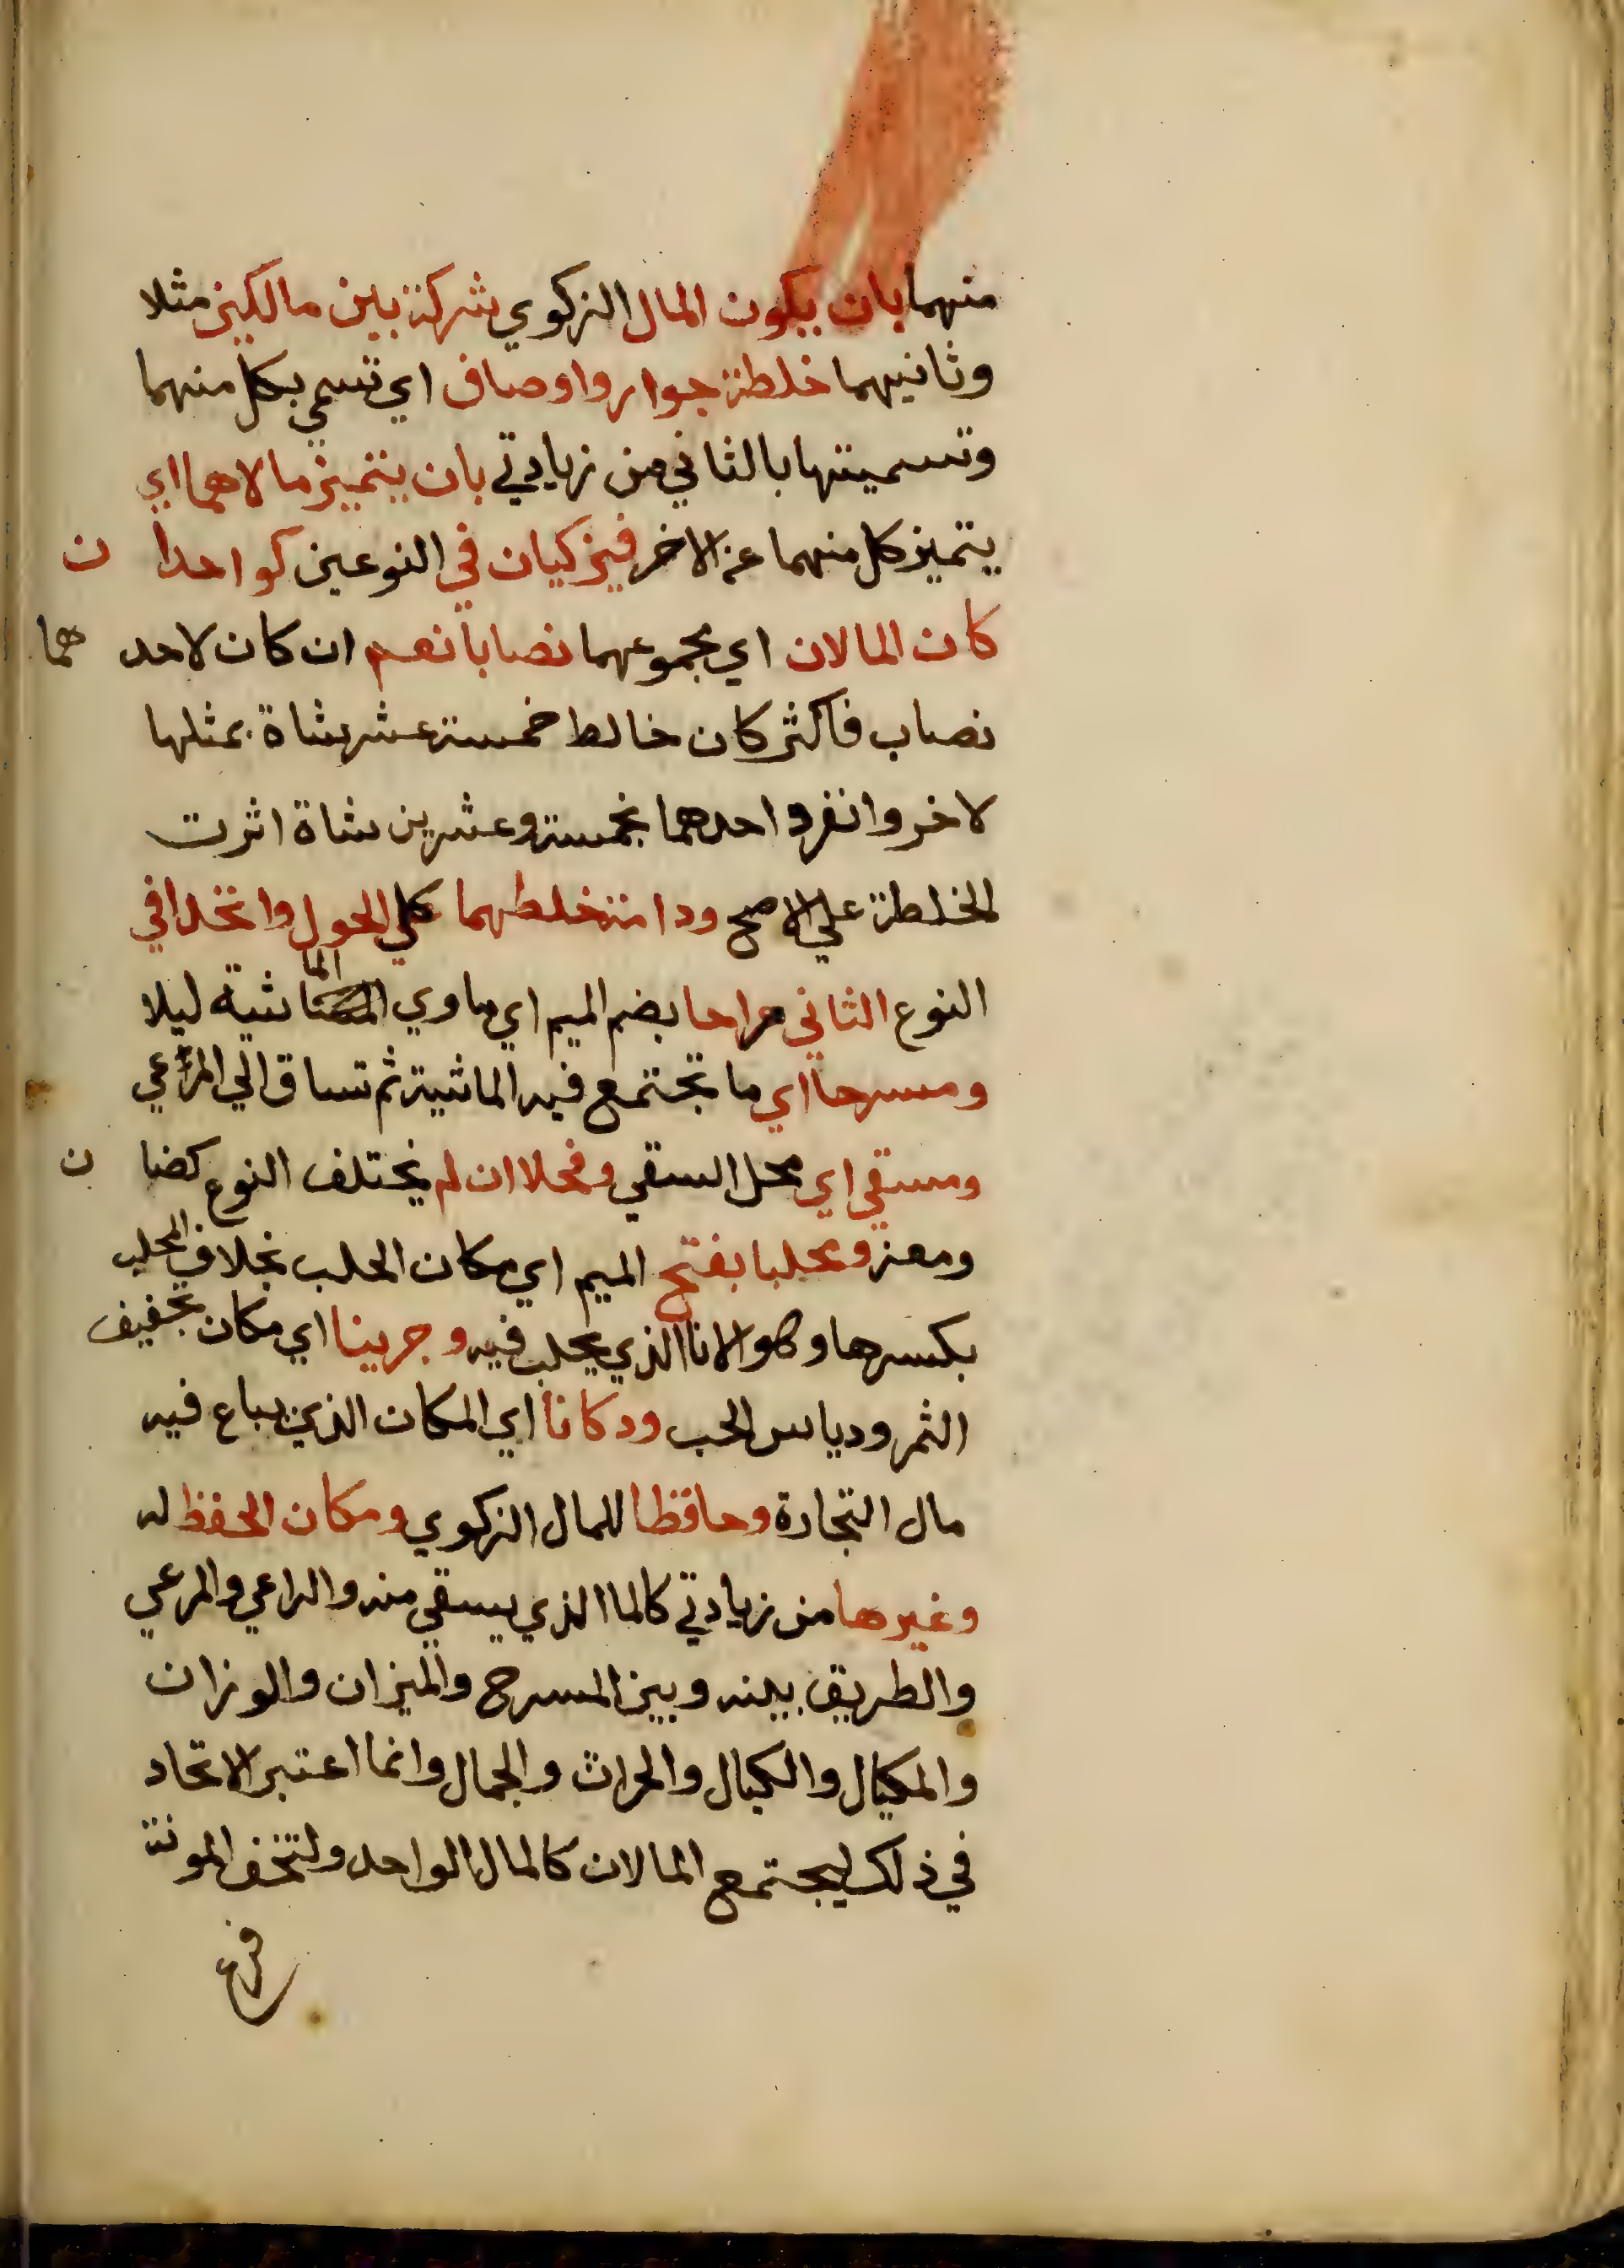 منهما بان يكون المال الزكوي شركة بين مالكين مثلا
وثانيهما خلطة جوار واوصاف اي تسمي بكل منهما
وتسميتها بالثاني من زيادتي بان يتميز مالاهما اي
يتميز كل منهما عن الاخر فيزكيان في النوعين كواحد ان
كان المالان اي مجموعهما نصابا نعم ان كان لاحدهما
نصاب فاكثر كان خالط خمسة عشر شاة بمثلها
لاخر وانفرد احدهما بخمسة وعشرين شاة اثرت
الخلطة علي الاصح ودامت خلطهما كل الحول واتحدا في
النوع الثاني مراحا بضم الميم اي ماوي الماشية ليلا
ومسرحا اي ما تجتمع فيه الماشية ثم تساق الي المرعي
ومسقي اي محل السقي وفحلا ان لم يختلف النوع كضان
ومعز ومحلبا بفتح الميم اي مكان الحلب بخلاف المحلب
بكسرها وهو الانا الذي يحلب فيه وجرينا اي مكان تجفيف
الثمر ودياس الحب ودكانا اي المكان الذي يباع فيه
مال التجارة وحافظا للمال الزكوي ومكان الحفظ له
وغيرها من زيادتي كالما الذي يسقي منه والراعي والمرعي
والطريق بينه وبين المسرح والميزان والوزان
والمكيال والكيال والحراث والجمال وانما اعتبر الاتحاد
في ذلك ليجتمع المالان كالمال الواحد ولتخف المونة
فرع